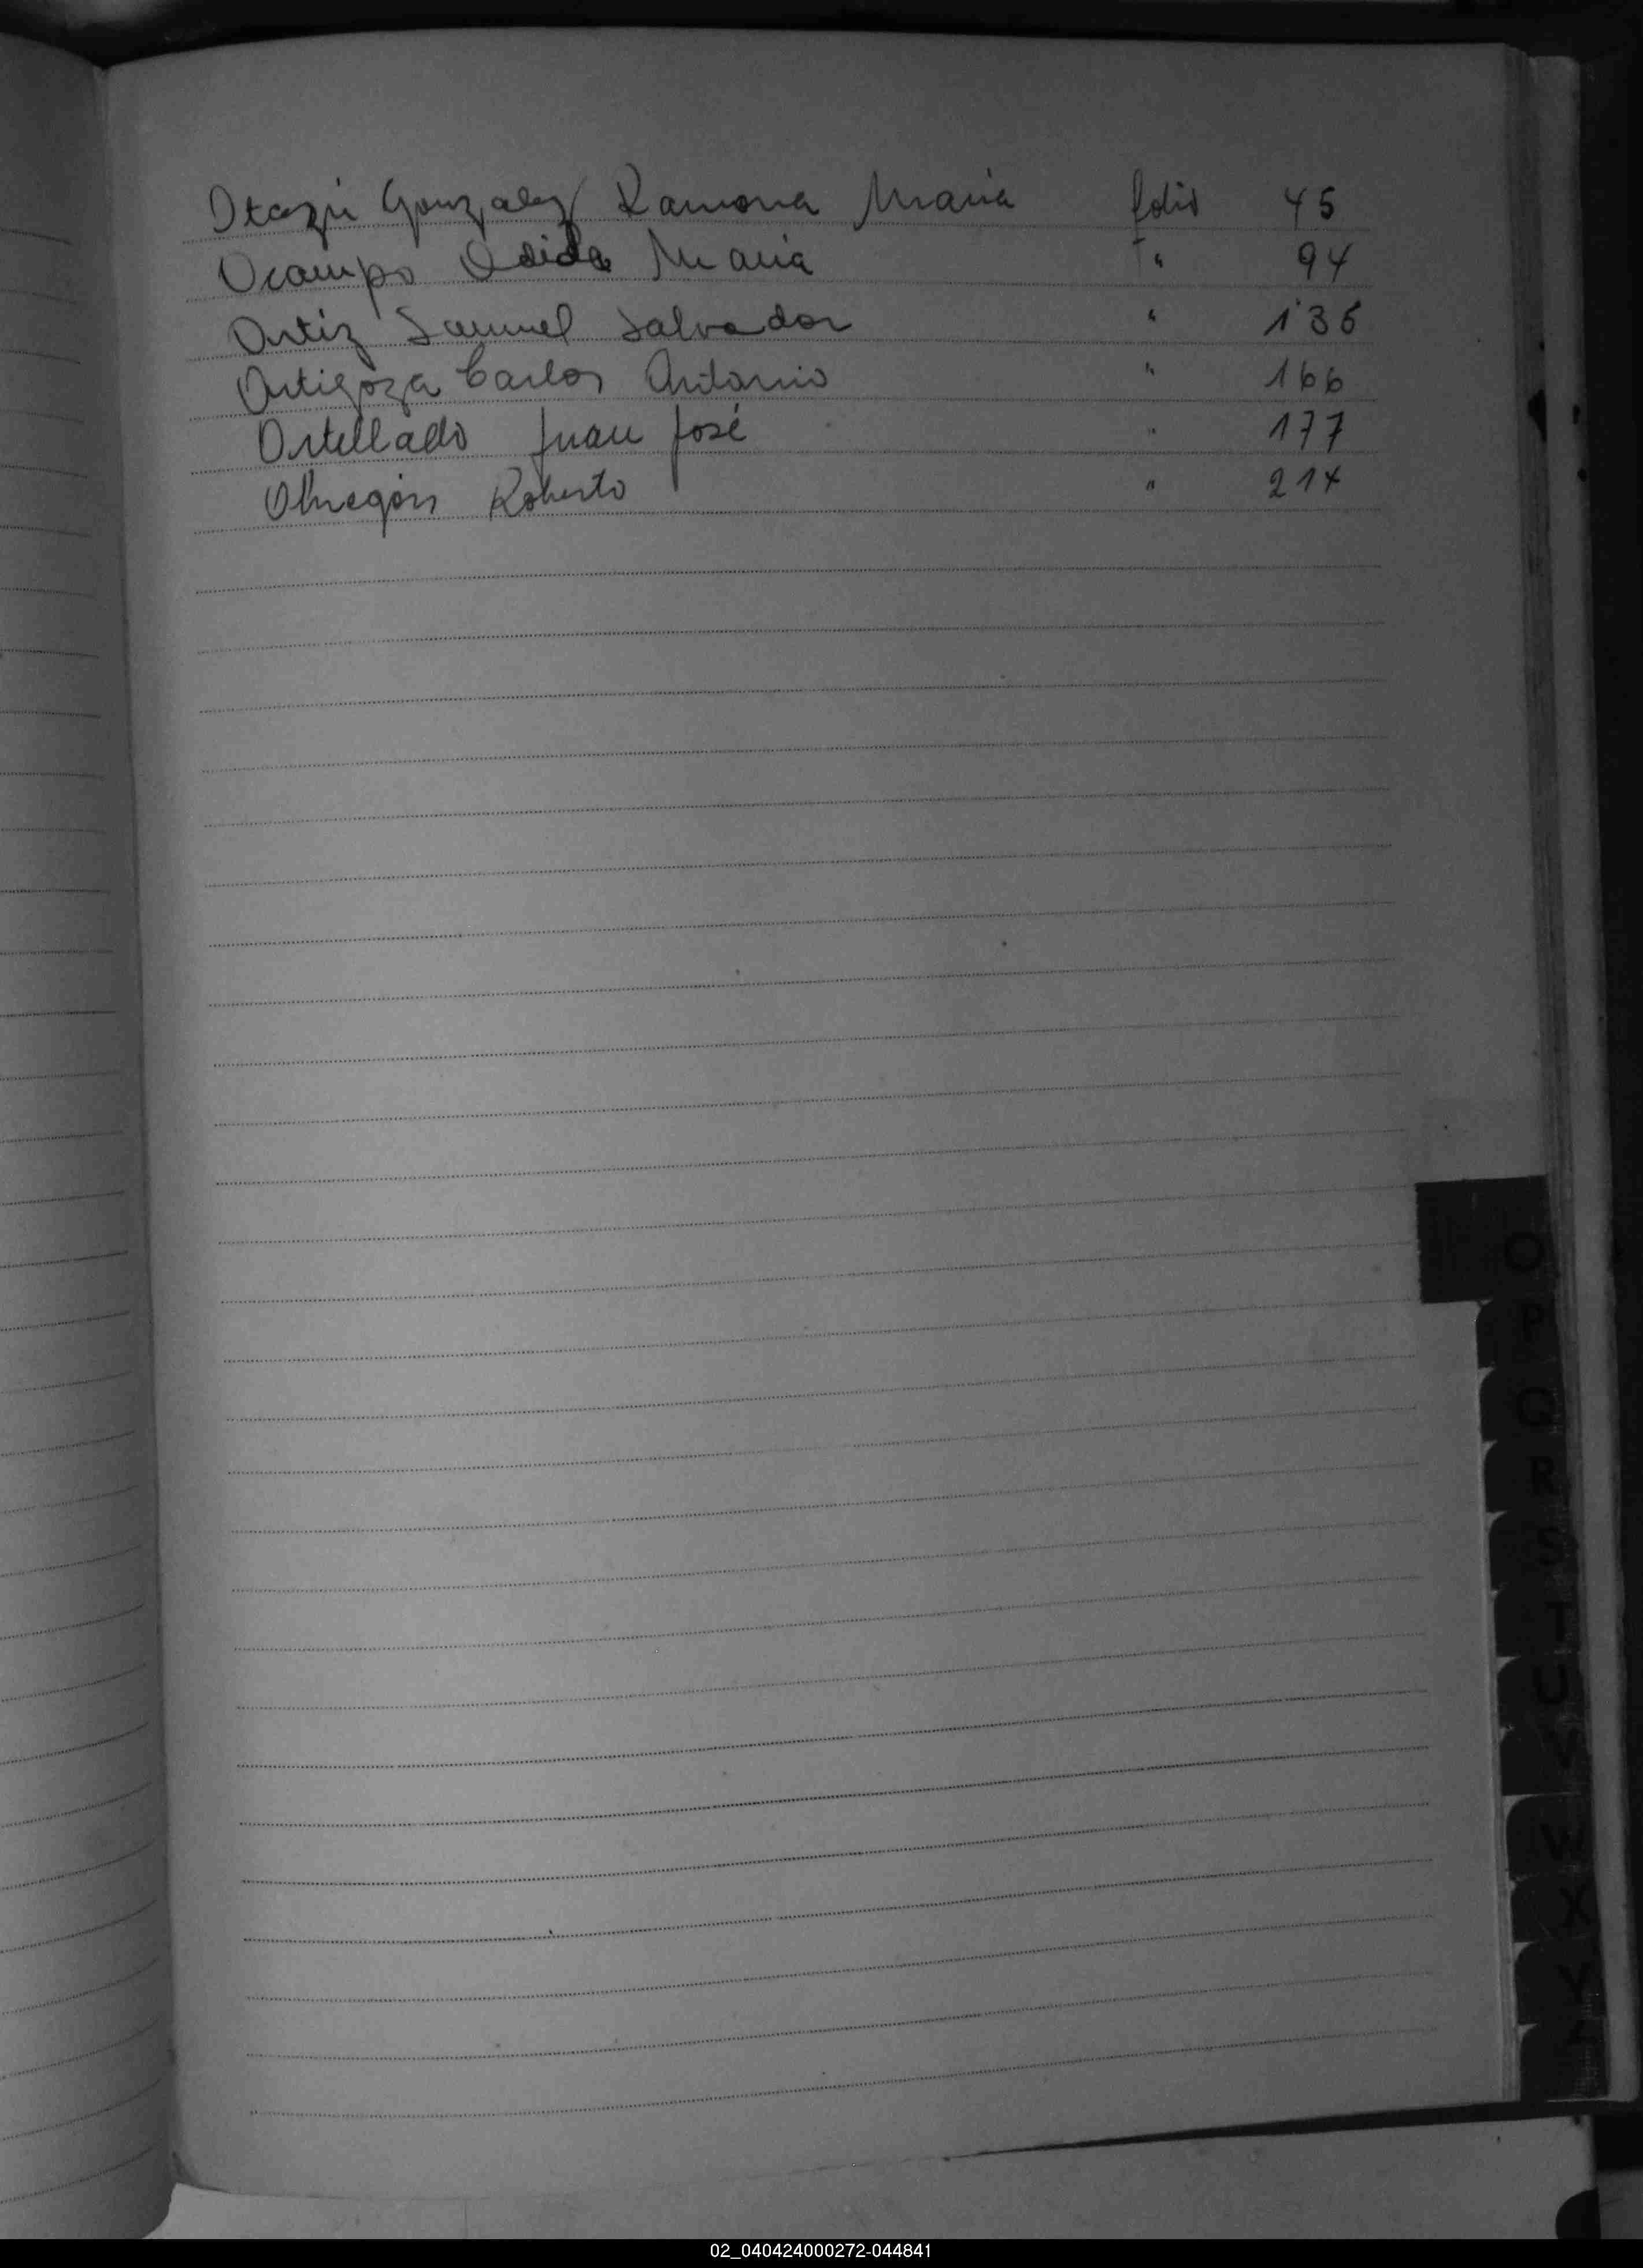 Otazú Gonzalez Ramona Maria folio 45
Ocampo Odida Maria " 94
Ortiz Samuel Salvador " 136
Ortigoza Carlos Antonio " 166
Ortellado Juan José " 177
Obregón Roberto " 214
O
P
Q
R
S
T
U
V
W
X
Y
02_040424000272-044841